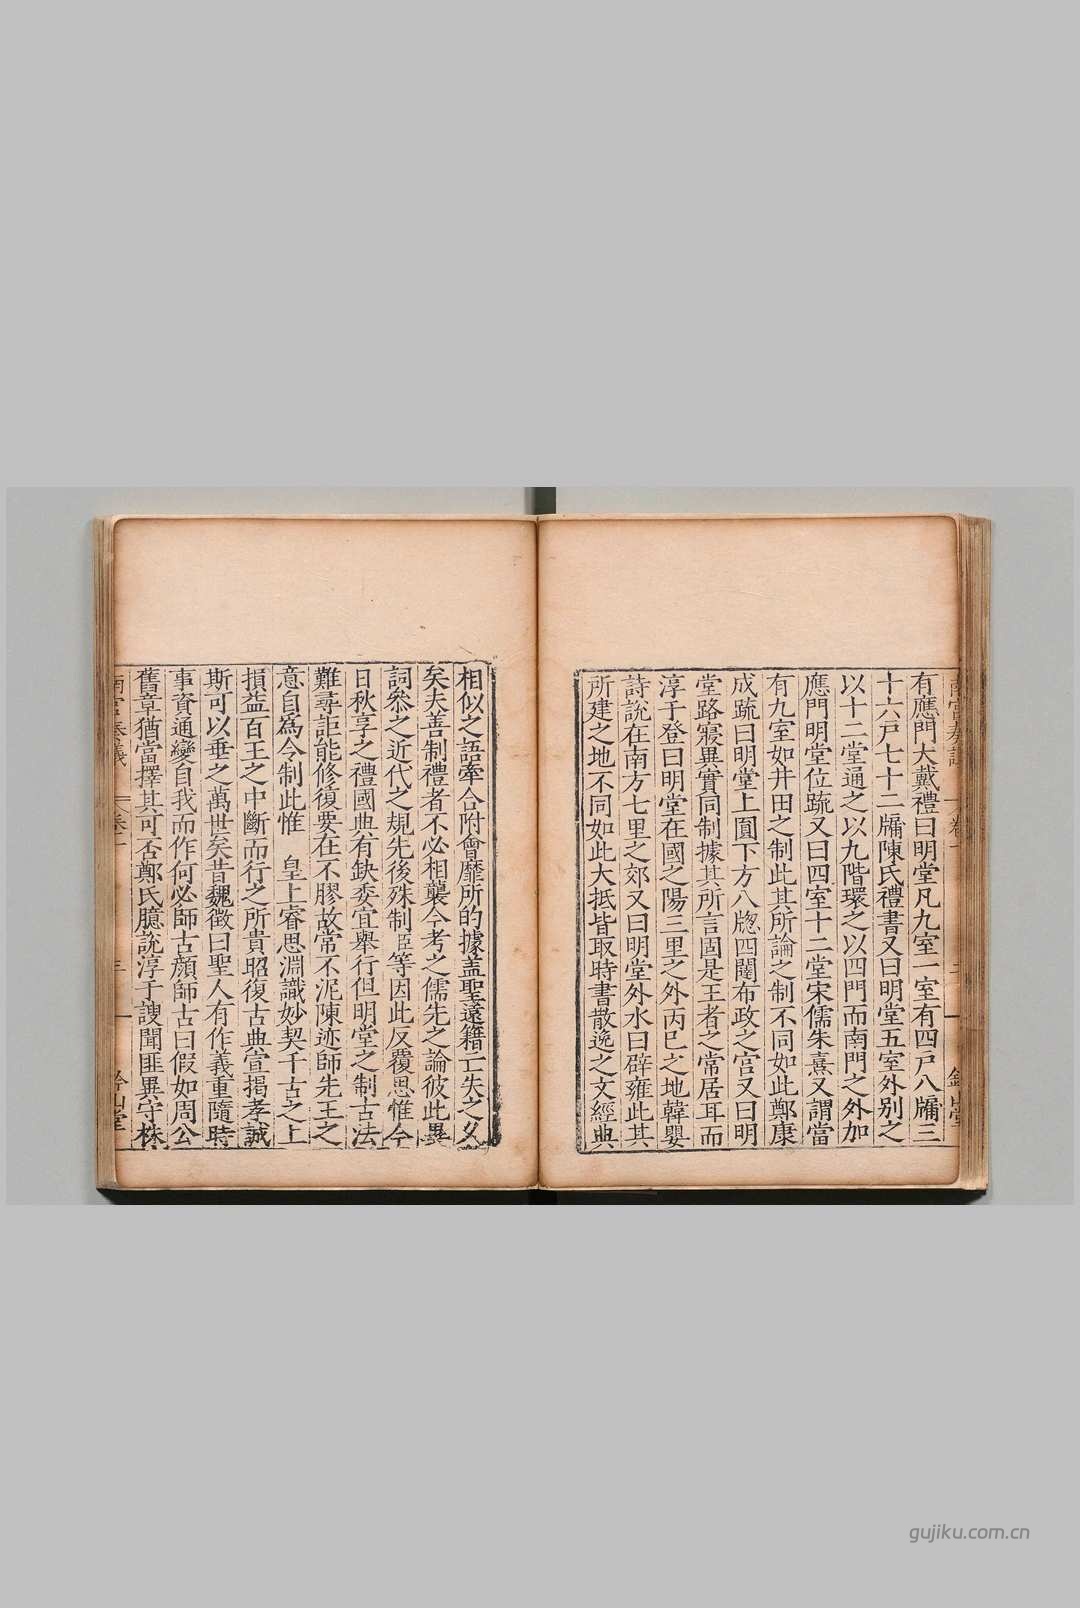 有應門大戴禮曰明堂凡九室一室有四戸八牖三
十六戸七十二牖陳氏禮書又曰明堂五室外别之
以十二堂通之以九階環之以四門而南門之外加
應門明堂位疏又曰四室十二堂宋儒朱熹又謂當
有九室如井田之制此其所論之制不同如此鄭康
成疏曰明堂上圎下方八牎四闥布政之宫又曰明
堂路寢異實同制據其所言固是王者之常居耳而
淳于登曰明堂在國之陽三里之外丙巳之地韓嬰
詩說在南方七里之郊又曰明堂外水曰辟雍此其
所建之地不同如此大抵皆取時書散逸之文經典
相似之語牽合附會靡所的據盖聖遠籍亡失之久
矣夫善制禮者不必相襲今考之儒先之論彼此異
詞叅之近代之規先後殊制臣等因此反覆思惟今
日秋享之禮國典有缺委宜舉行但明堂之制古法
難尋詎能修復要在不膠故常不泥陳迹師先王之
意自爲令制此惟　皇上睿思淵識妙契千古之上
損益百王之中斷而行之所貴昭復古典宣揭孝誠
斯可以垂之萬世矣昔魏徵曰聖人有作義重隨時
事資通變自我而作何必師古顔師古曰假如周公
舊章猶當擇其可否鄭氏臆説淳于謏聞匪異守株
南宫奏議
卷一
鈐山堂
gujiku.com.cn